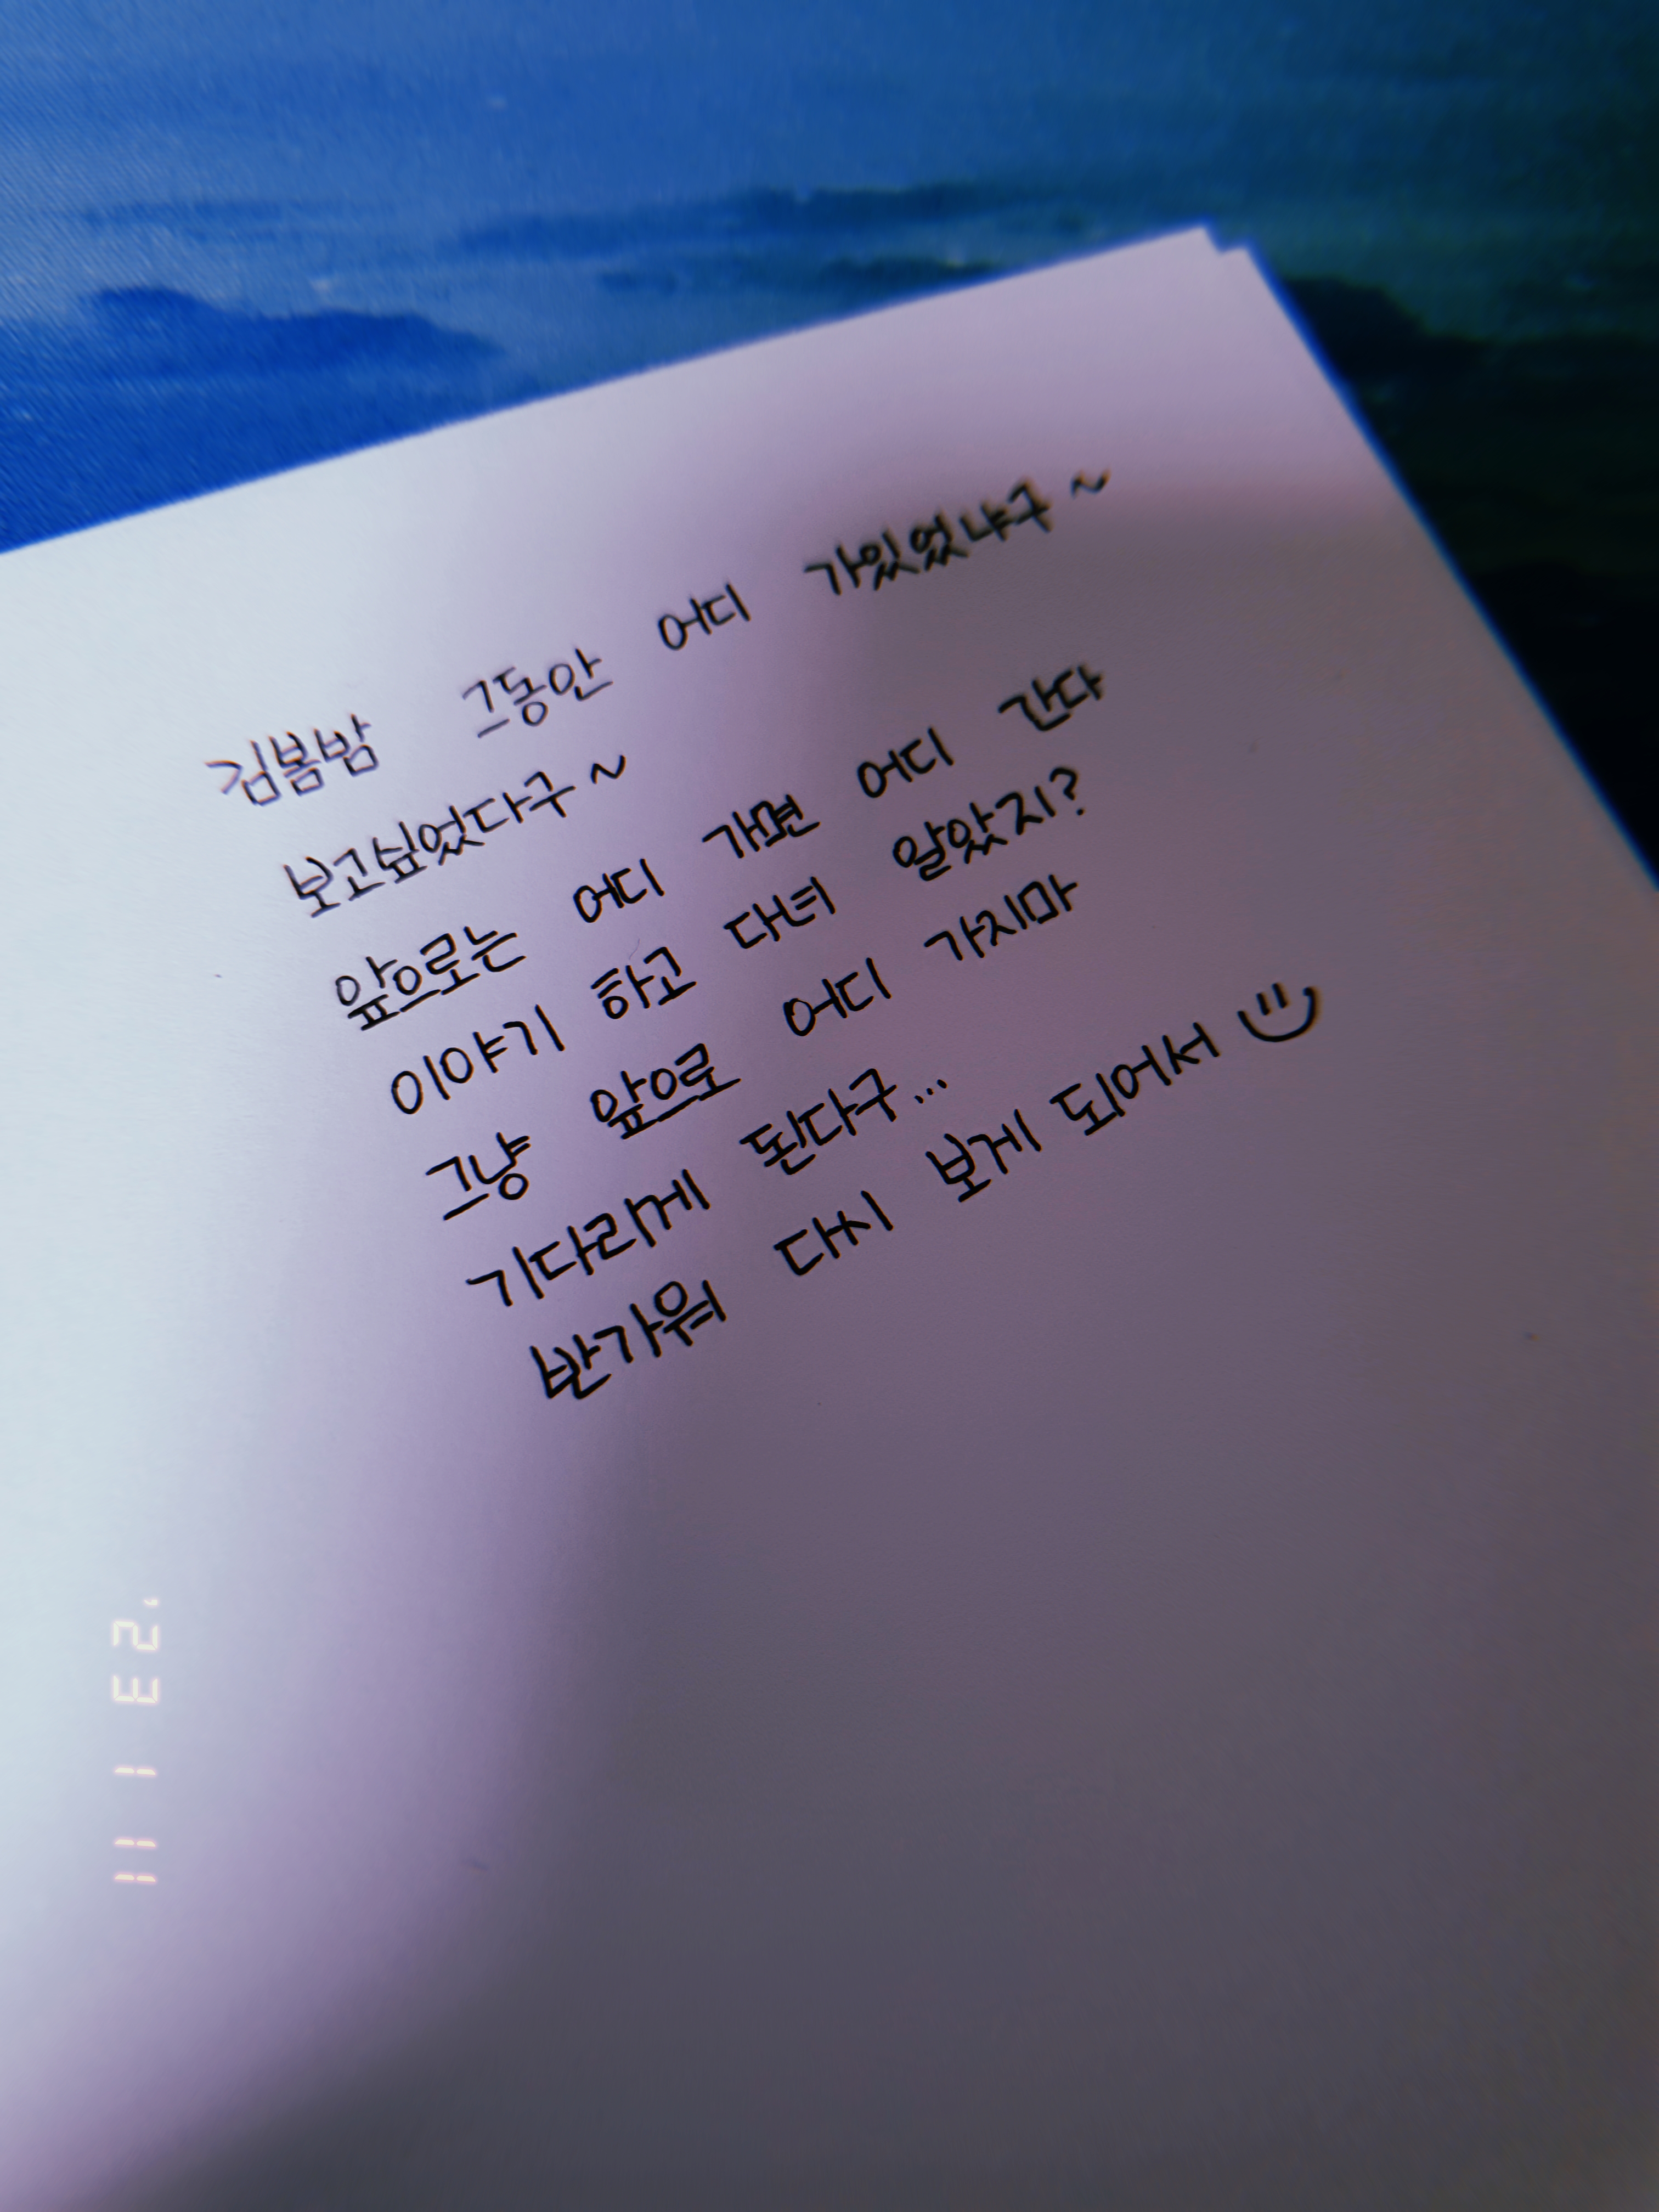 김봄밤 그동안 어디 가있었냐구~
보고싶었다구~
앞으로는 어디 가면 어디 간다
이야기 하고 다녀 알았지?
그냥 앞으로 어디 가지마
기다리게 된다구...
반가워 다시 보게 되어서
11 1 '23